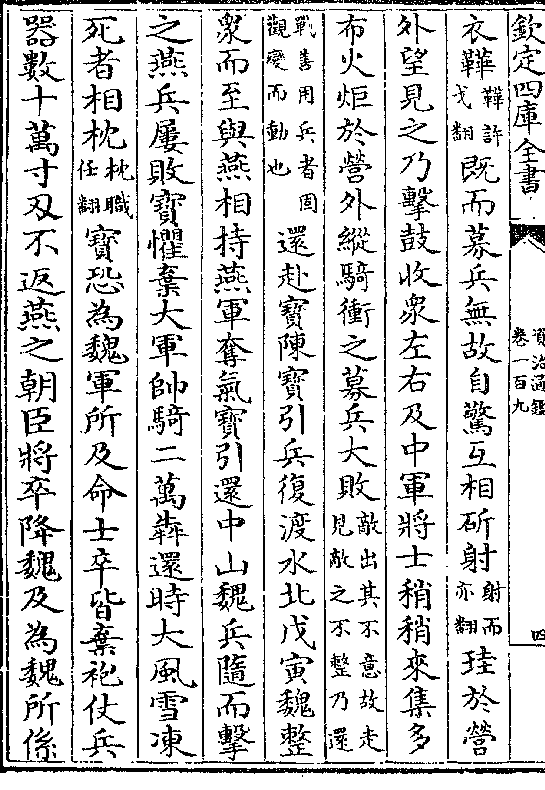 欽定四庫全書
資治通鑑
卷一百九
四
衣鞾鞾許戈翻既而募兵無故自驚互相斫射射而亦翻珪於營
外望見之乃擊鼓收衆左右及中軍將士稍稍來集多
布火炬於營外縱騎衝之募兵大敗敵出其不意故走見敵之不整乃還
戰善用兵者固觀變而動也還赴寶陳寶引兵復渡水北戊寅魏整
衆而至與燕相持燕軍奪氣寶引還中山魏兵隨而擊
之燕兵屢敗寶懼棄大軍帥騎二萬犇還時大風雪凍
死者相枕枕職任翻寶恐為魏軍所及命士卒皆棄袍仗兵
器數十萬寸刃不返燕之朝臣將卒降魏及為魏所係